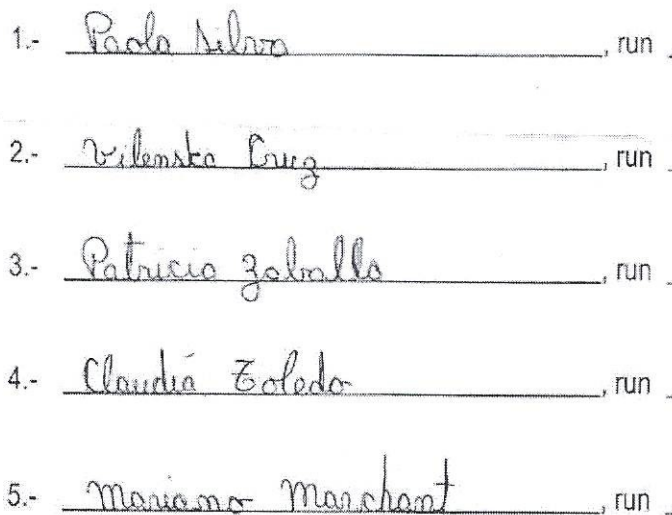 1.- Paola Silva, run
2.- Vilenska Cruz, run
3.- Patricia Zaballa, run
4.- Claudia Toledo, run
5.- Mariano Marchant, run